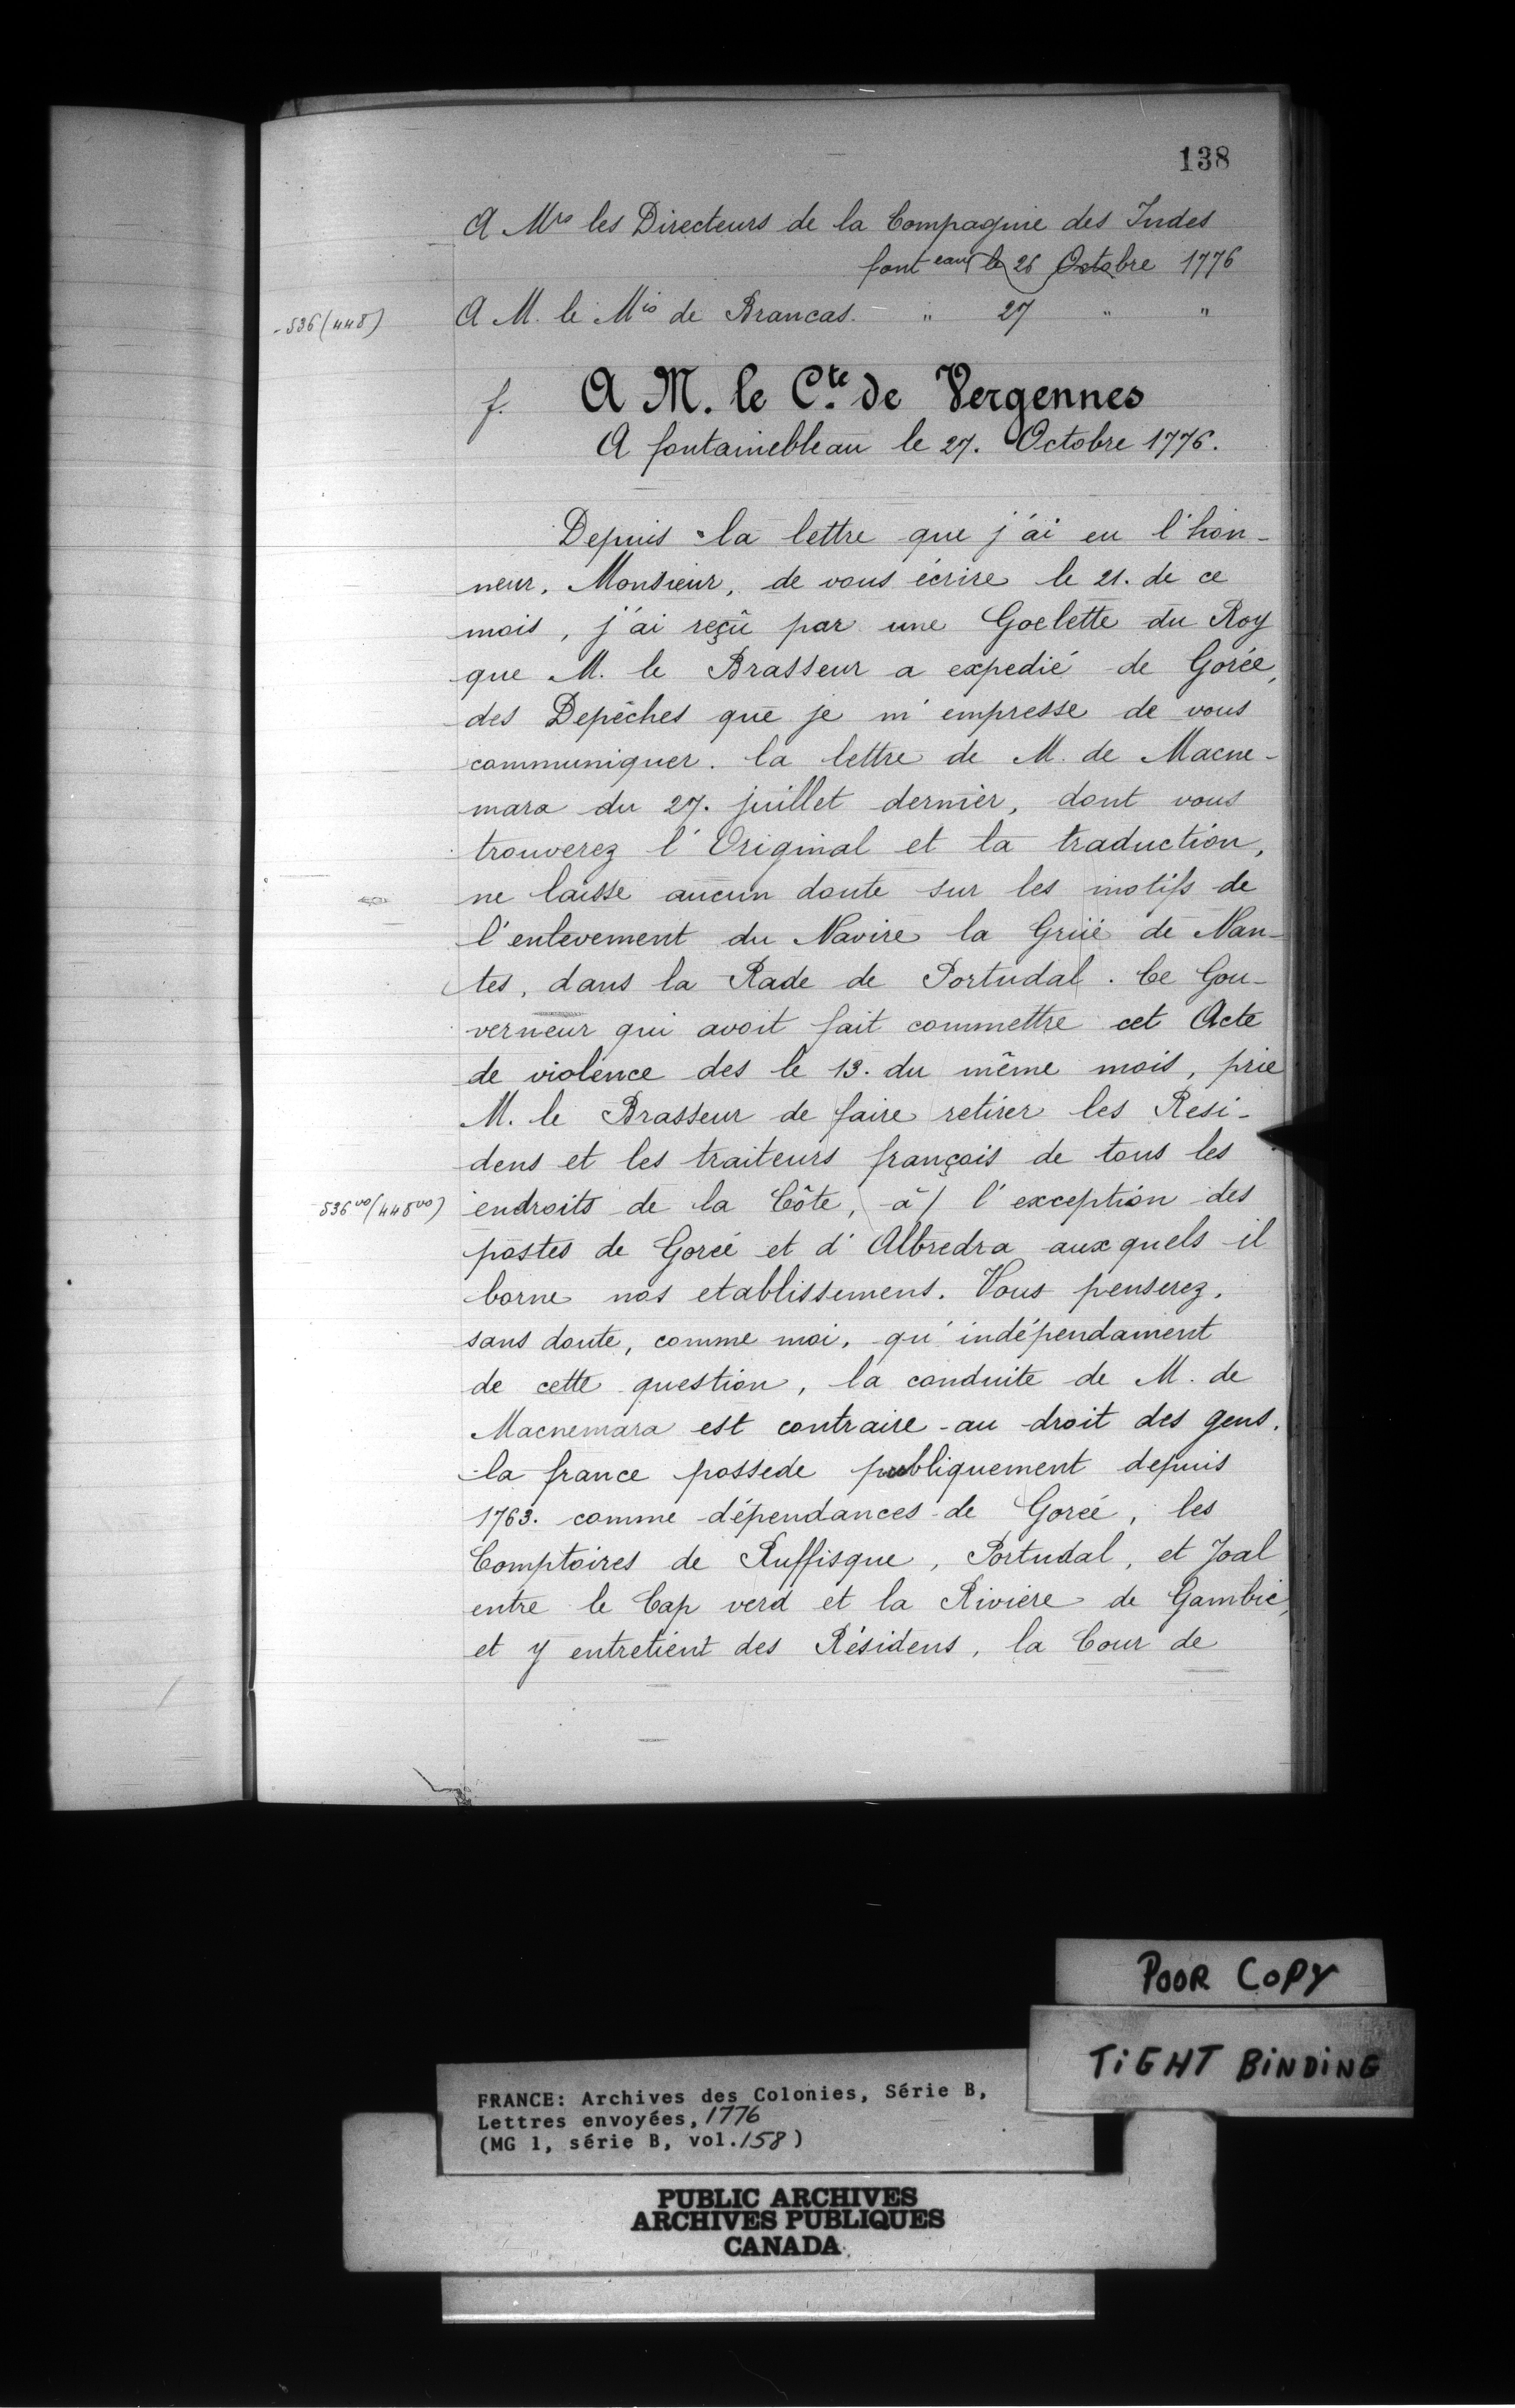 138
A Mrs les Directeurs de la Compagnie des Indes
font eau le 26 Octobre 1776
- 536 (448)
A M. le Mis de Brancas. " 27 " "
f. A M. le Cte. de Vergennes
A fontainebleau le 27. Octobre 1776.
Depuis la lettre que j'ai eu l'hon-
neur, Monsieur, de vous écrire le 21. de ce
mois, j'ai reçû par une Goelette du Roy
que M. le Brasseur a expedié de Gorée,
des Depêches que je m'empresse de vous
communiquer. la lettre de M. de Macne-
mara du 27. juillet dernier, dont vous
trouverez l'Original et la traduction,
ne laisse aucun doute sur les motifs de
l'enlevement du Navire la Gruë de Nan-
tes, dans la Rade de Portudal. Ce Gou-
verneur qui avoit fait commettre cet Acte
de violence des le 13. du même mois, prie
M. le Brasseur de faire retirer les Resi-
dens et les traiteurs français de tous les
536 vo (448 vo)
endroits de la Côte, à / l'exception des
postes de Goreé et d'Albredra auxquels il
borne nos etablissemens. Vous penserez,
sans doute, comme moi, qu'indépendament
de cette question, la conduite de M. de
Macnemara est contraire au droit des gens.
la france possede publiquement depuis
1763. comme dépendances de Goreé, les
Comptoires de Ruffisque, Portudal, et Joal
entre le Cap verd et la Riviere de Gambie,
et y entretient des Résidens, la Cour de
POOR COPY
TiGHT BiNDiNG
FRANCE: Archives des Colonies, Série B,
Lettres envoyées, 1776
(MG 1, série B, vol. 158)
PUBLIC ARCHIVES
ARCHIVES PUBLIQUES
CANADA